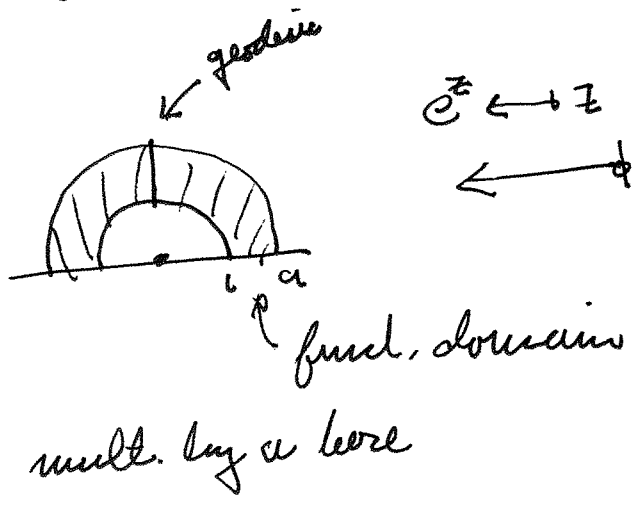 geodesic
e^z ↤ z
1 a
fund. domain
mult. by a here